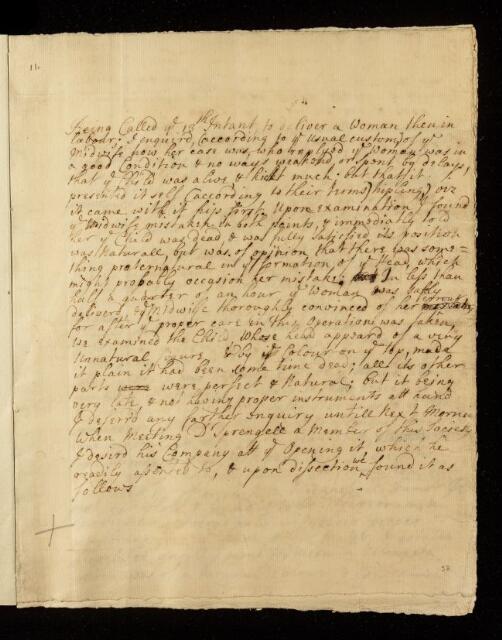 11.
Being Called yᵉ 13ᵗʰ Intant to deliver a Woman then in
Labour; I enquird (according to yᵉ usual custom) of yᵉ
Midwife how her case was, who replyd yᵉ Woman was in
a good Condition & no ways weakend, or spent by delays,
that yᵉ Child was alive & kickt much. but that it
presented it self (according to their terms) viz
it came with it hips first. Upon examination I found
yᵉ Midwife mistaken in both points, & immediatly told
her yᵉ Child was dead & was fully satisfied its position
was Naturall, but was of opinion that there was some-
thing preternatural in yᵉ formation of yᵉ Head, which
might probably occasion her mistake. In less than
half a quarter of an hour yᵉ Woman was safely
deliverd & yᵉ Midwife thoroughly convinced of her
for after yᵉ proper care in this Operation was taken,
we examined the Child, whose head appeard of a very
Unnatural figure & by it Colour on yᵉ top, made
it plain it had been some time dead; all its other
parts were perfect & Natural; but it being
very late & not having proper instruments att hand
I deferrd any farther Inquiry untill Next Morning
When Meeting Dʳ Sprengell a Member of this Society
I desird his Company att yᵉ Opening it, which he
readily assented to, & upon dissection we found it as
follows
58